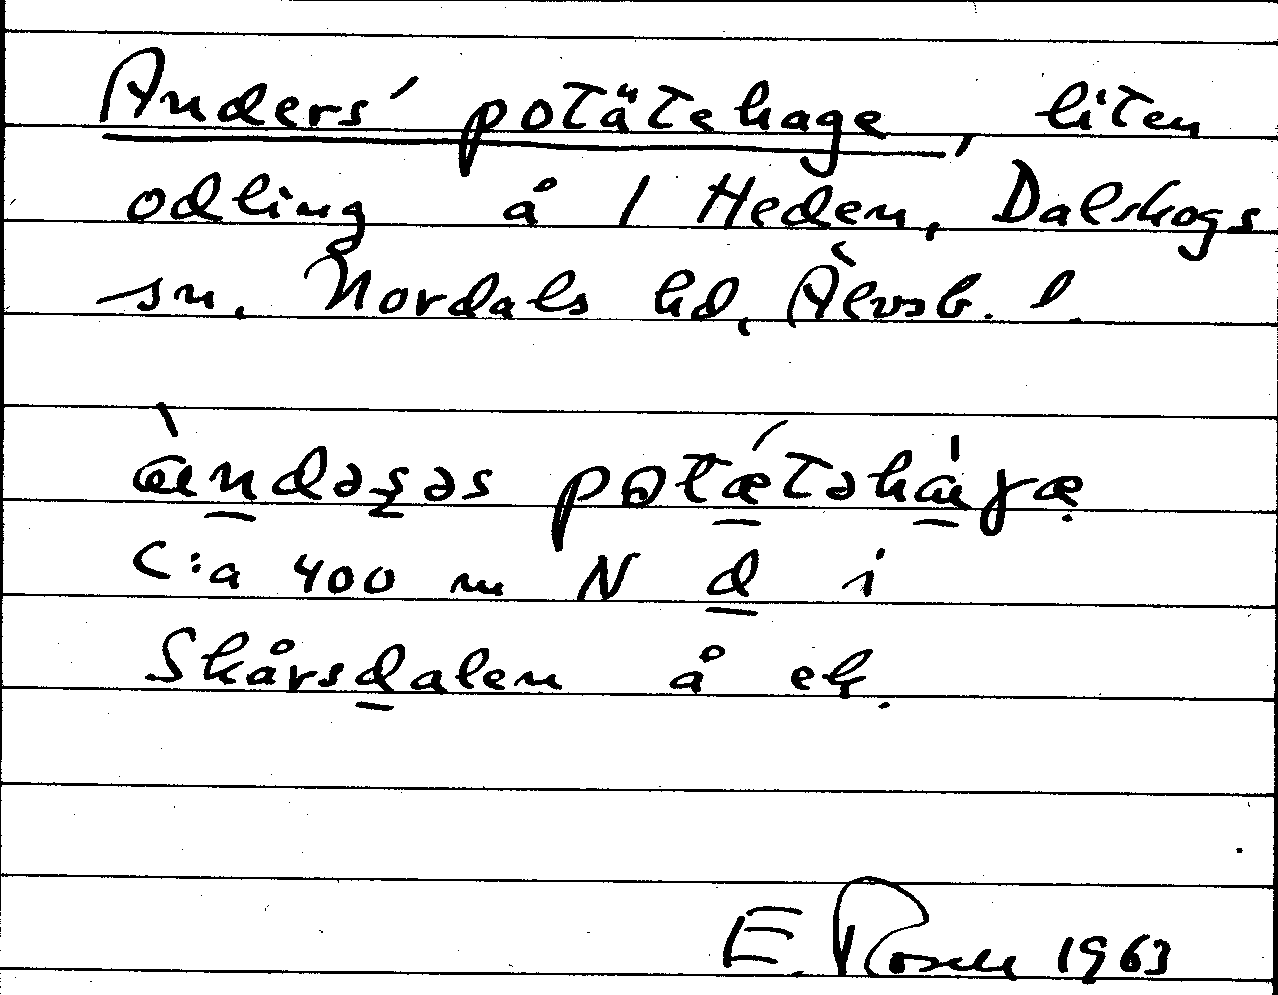 Anders' potätehage, liten
odling å 1 Heden, Dalskogs
sn. Nordals hd, Älvsb. l.
àndəsəs potǽtəhágæ
C:a 400 m N d i
Skårsdalen å ek.
E. Rosell 1963